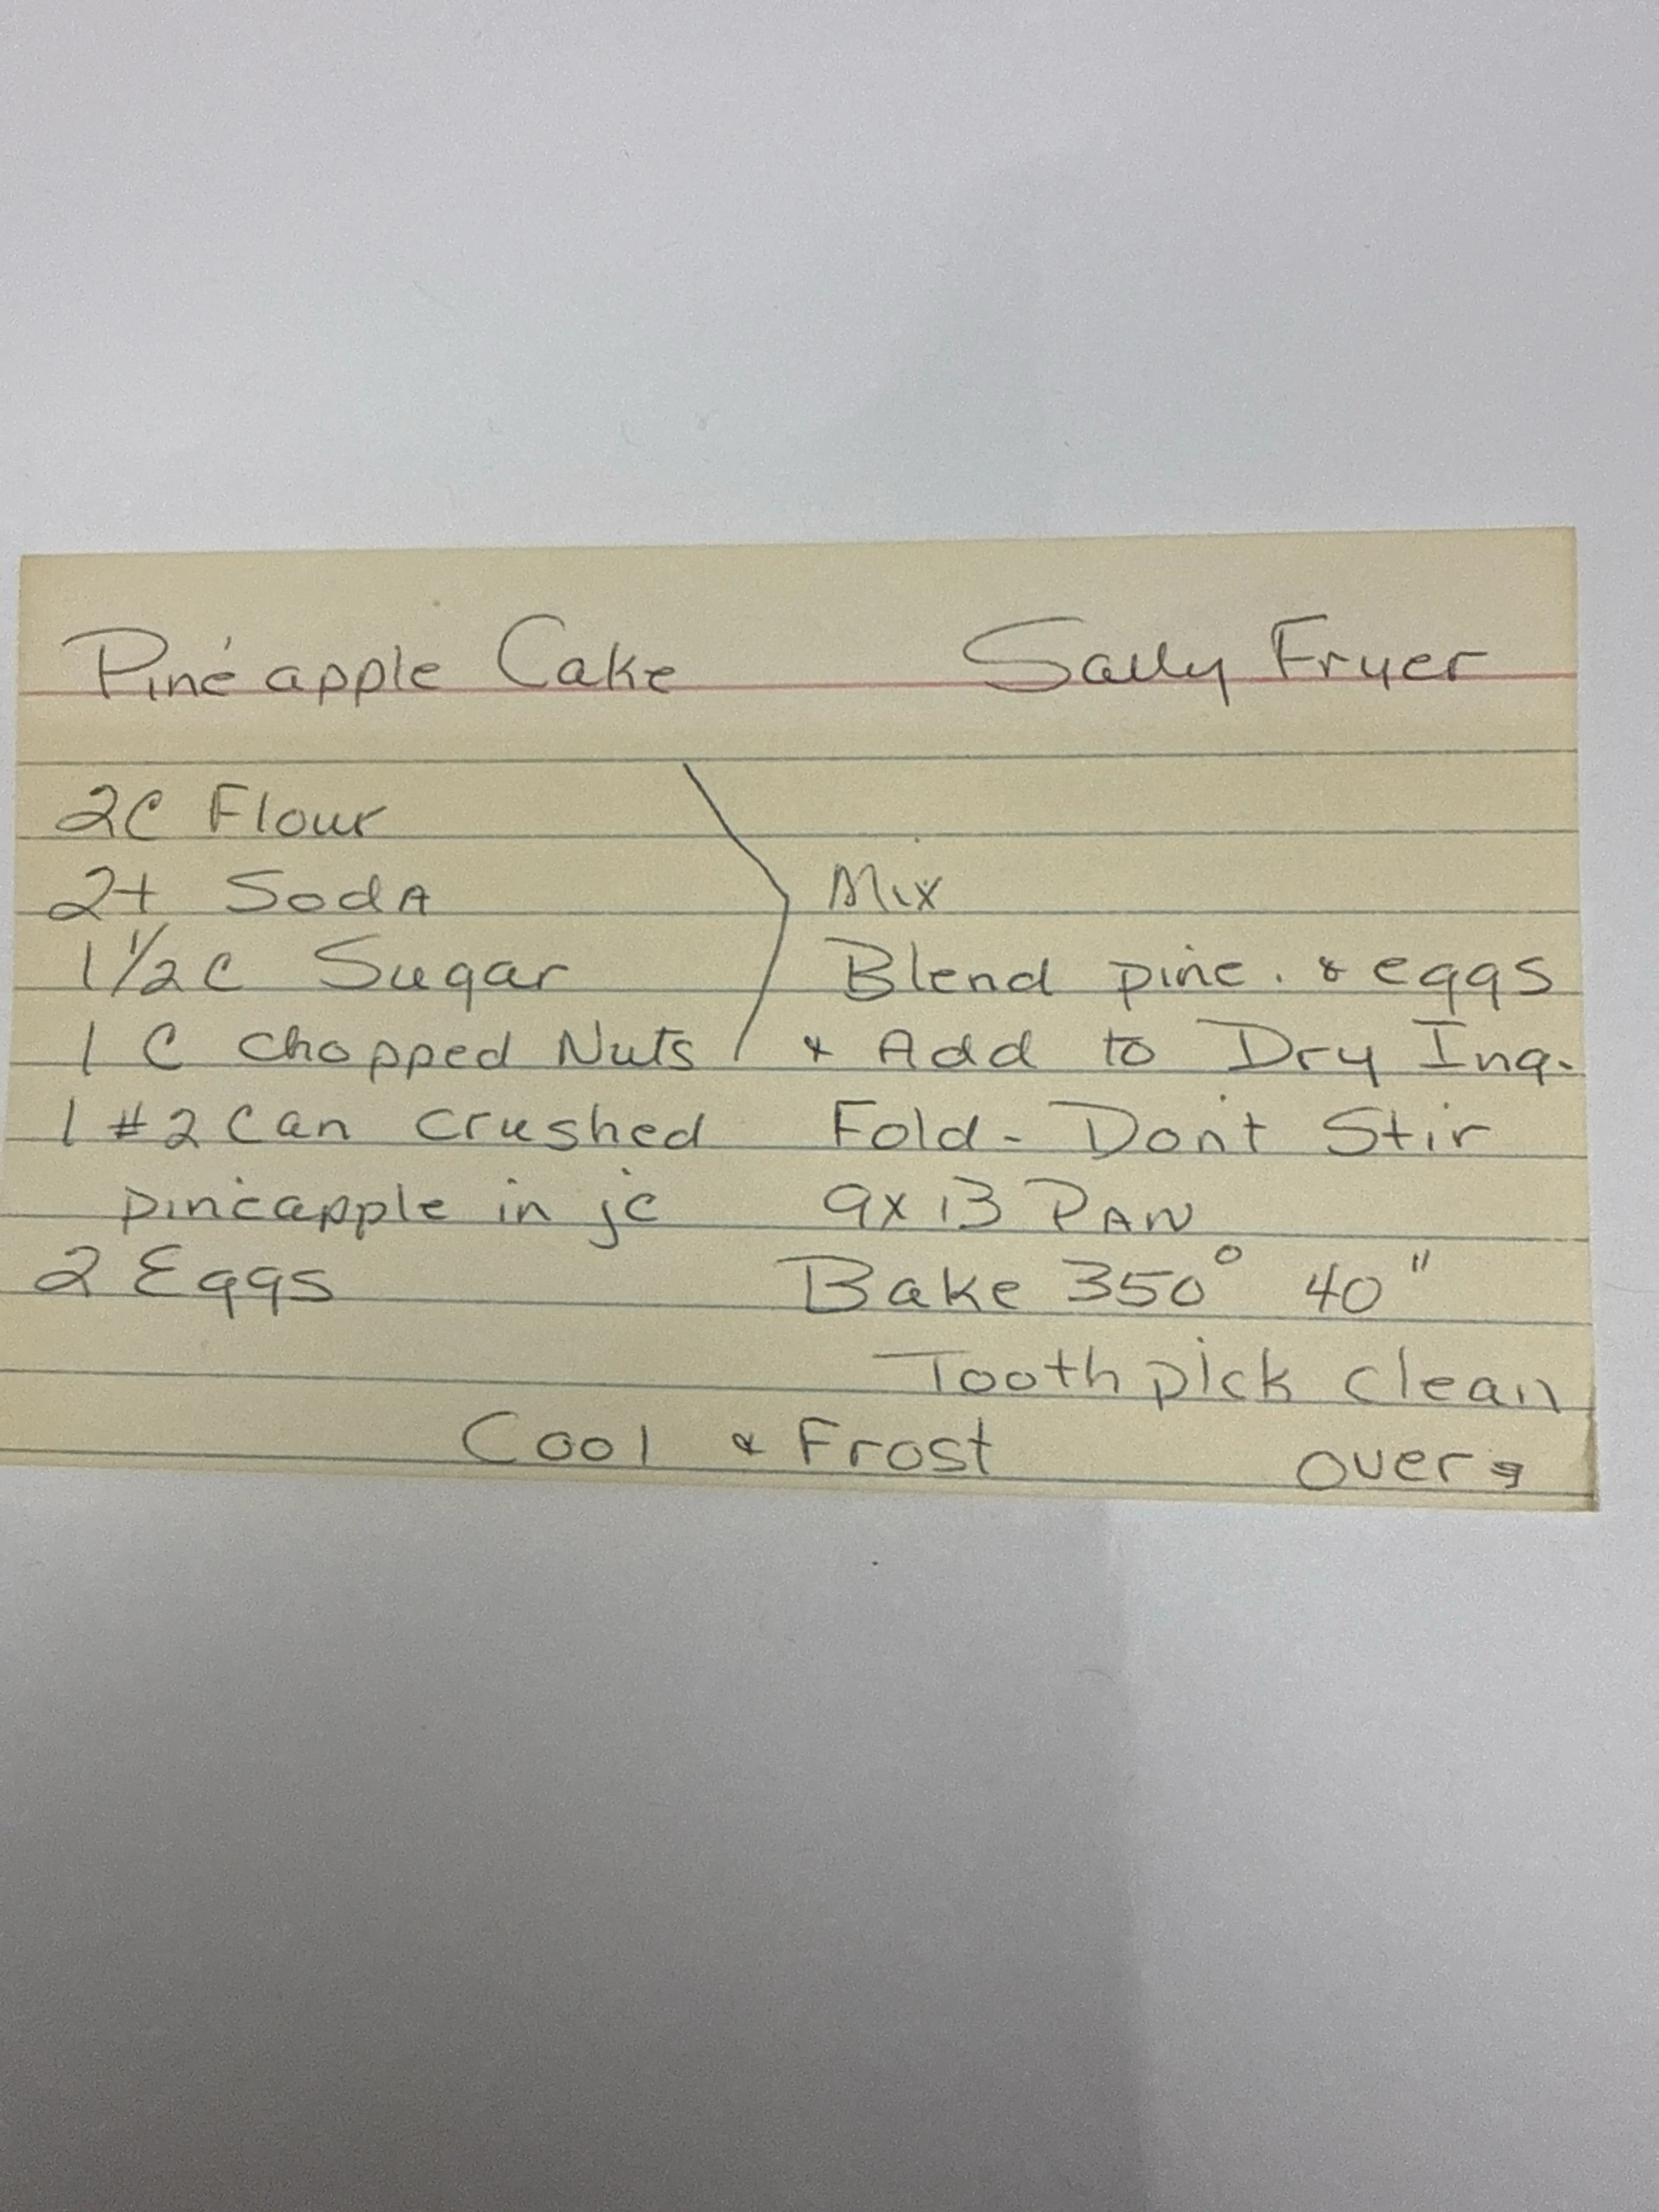 Pineapple Cake Sally Fryer
2C Flour
2t SodA
1 1/2 C Sugar
1 C chopped Nuts
1 #2 Can crushed
pineapple in jc
2 Eggs
Mix
Blend pine. & eggs
& Add to Dry Ing.
Fold - Don't Stir
9x13 PAN
Bake 350° 40"
Toothpick clean
Cool & Frost over→